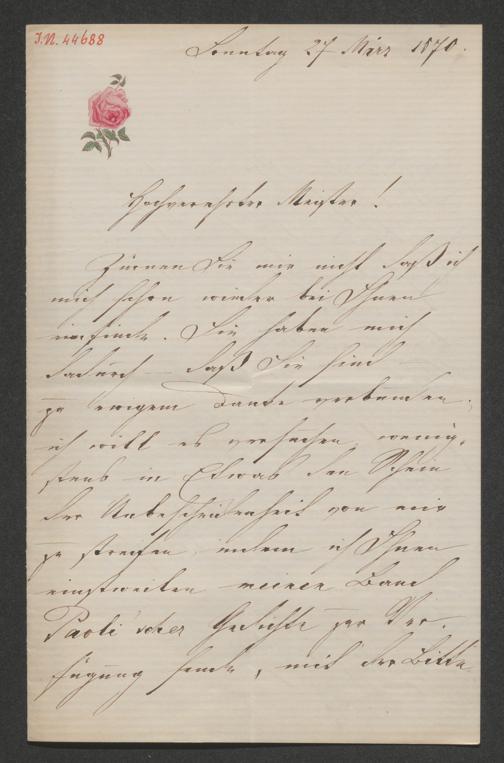 I.N. 44688
Sonntag 27 März 1870.
Hochverehrter Meister!
Zürnen Sie mir nicht daß ich
mich schon wieder bei Ihnen
einfinde. Sie haben mich
dadurch – daß Sie sind
zu ewigem Danke verbunden,
ich will es versuchen, wenig-
stens in Etwas den Schein
der Unbescheidenheit von mir
zu streifen, indem ich Ihnen
einstweilen meinen Band
Paoli'scher Gedichte zur Ver-
fügung sende, mit der Bitte